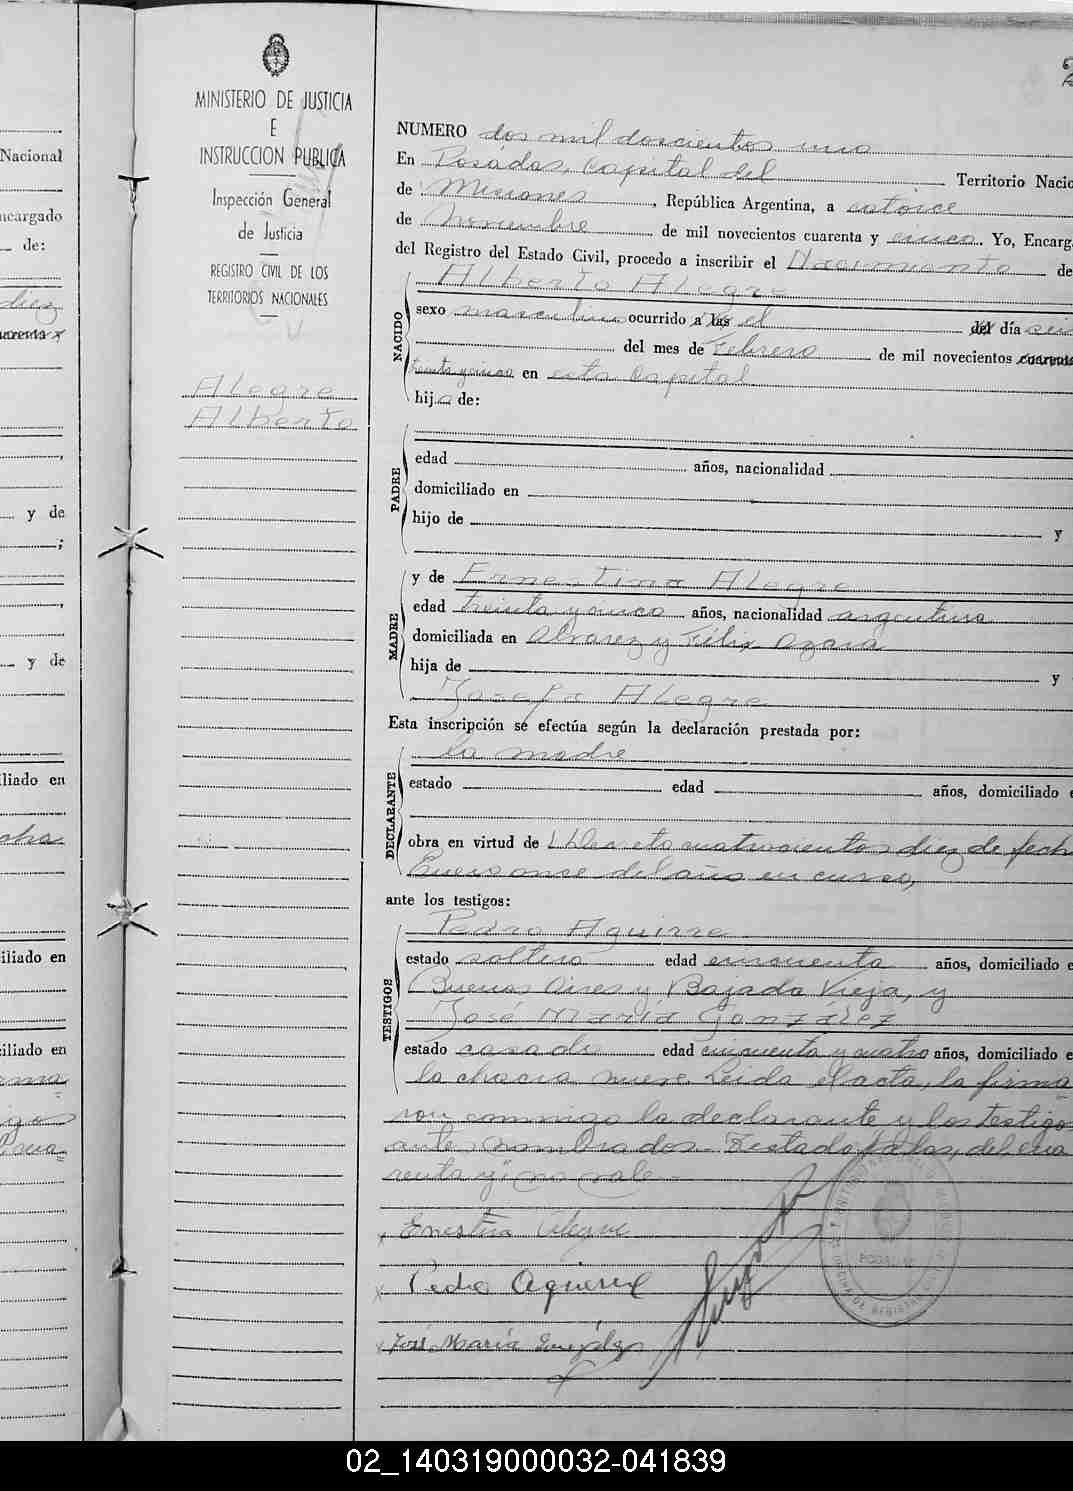 MINISTERIO DE JUSTICIA
E
INSTRUCCION PUBLICA
Inspección General
de Justicia
REGISTRO CIVIL DE LOS
TERRITORIOS NACIONALES
Alegre
Alberto
Nacional
ncargado
de:
diez
y de
;
y de
liado en
ocho
iliado en
iliado en
NUMERO dos mil doscientos uno
En Posadas, Capital del Territorio Nacio
de Misiones, República Argentina, a catorce
de Noviembre de mil novecientos cuarenta y cinco. Yo, Encarg
del Registro del Estado Civil, procedo a inscribir el Nacimiento de
NACIDO
Alberto Alegre
sexo masculino ocurrido a las el del día seis
del mes de Febrero de mil novecientos cuarenta
treinta y cinco en esta Capital
hijo de:
PADRE
edad años, nacionalidad
domiciliado en
hijo de y
MADRE
y de Ernestina Alegre
edad treinta y cinco años, nacionalidad argentina
domiciliada en Alvarez y Félix Azara
hija de y
Josefa Alegre
Esta inscripción se efectúa según la declaración prestada por:
DECLARANTE
la madre
estado edad años, domiciliado e
obra en virtud de l Decreto cuatrocientos diez de fech
Enero once del año en curso,
ante los testigos:
TESTIGOS
Pedro Aguirre
estado soltero edad cincuenta años, domiciliado e
Buenos Aires y Bajada Vieja, y
José María González
estado casado edad cincuenta y cuatro años, domiciliado e
la chacra nueve. Leida el acta, la firma
ron conmigo la declarante y los testigos
ante nombrados. Testado: a las, del, cua
renta y: no vale
Ernestina Alegre
Pedro Aguirre
José María González
02_140319000032-041839